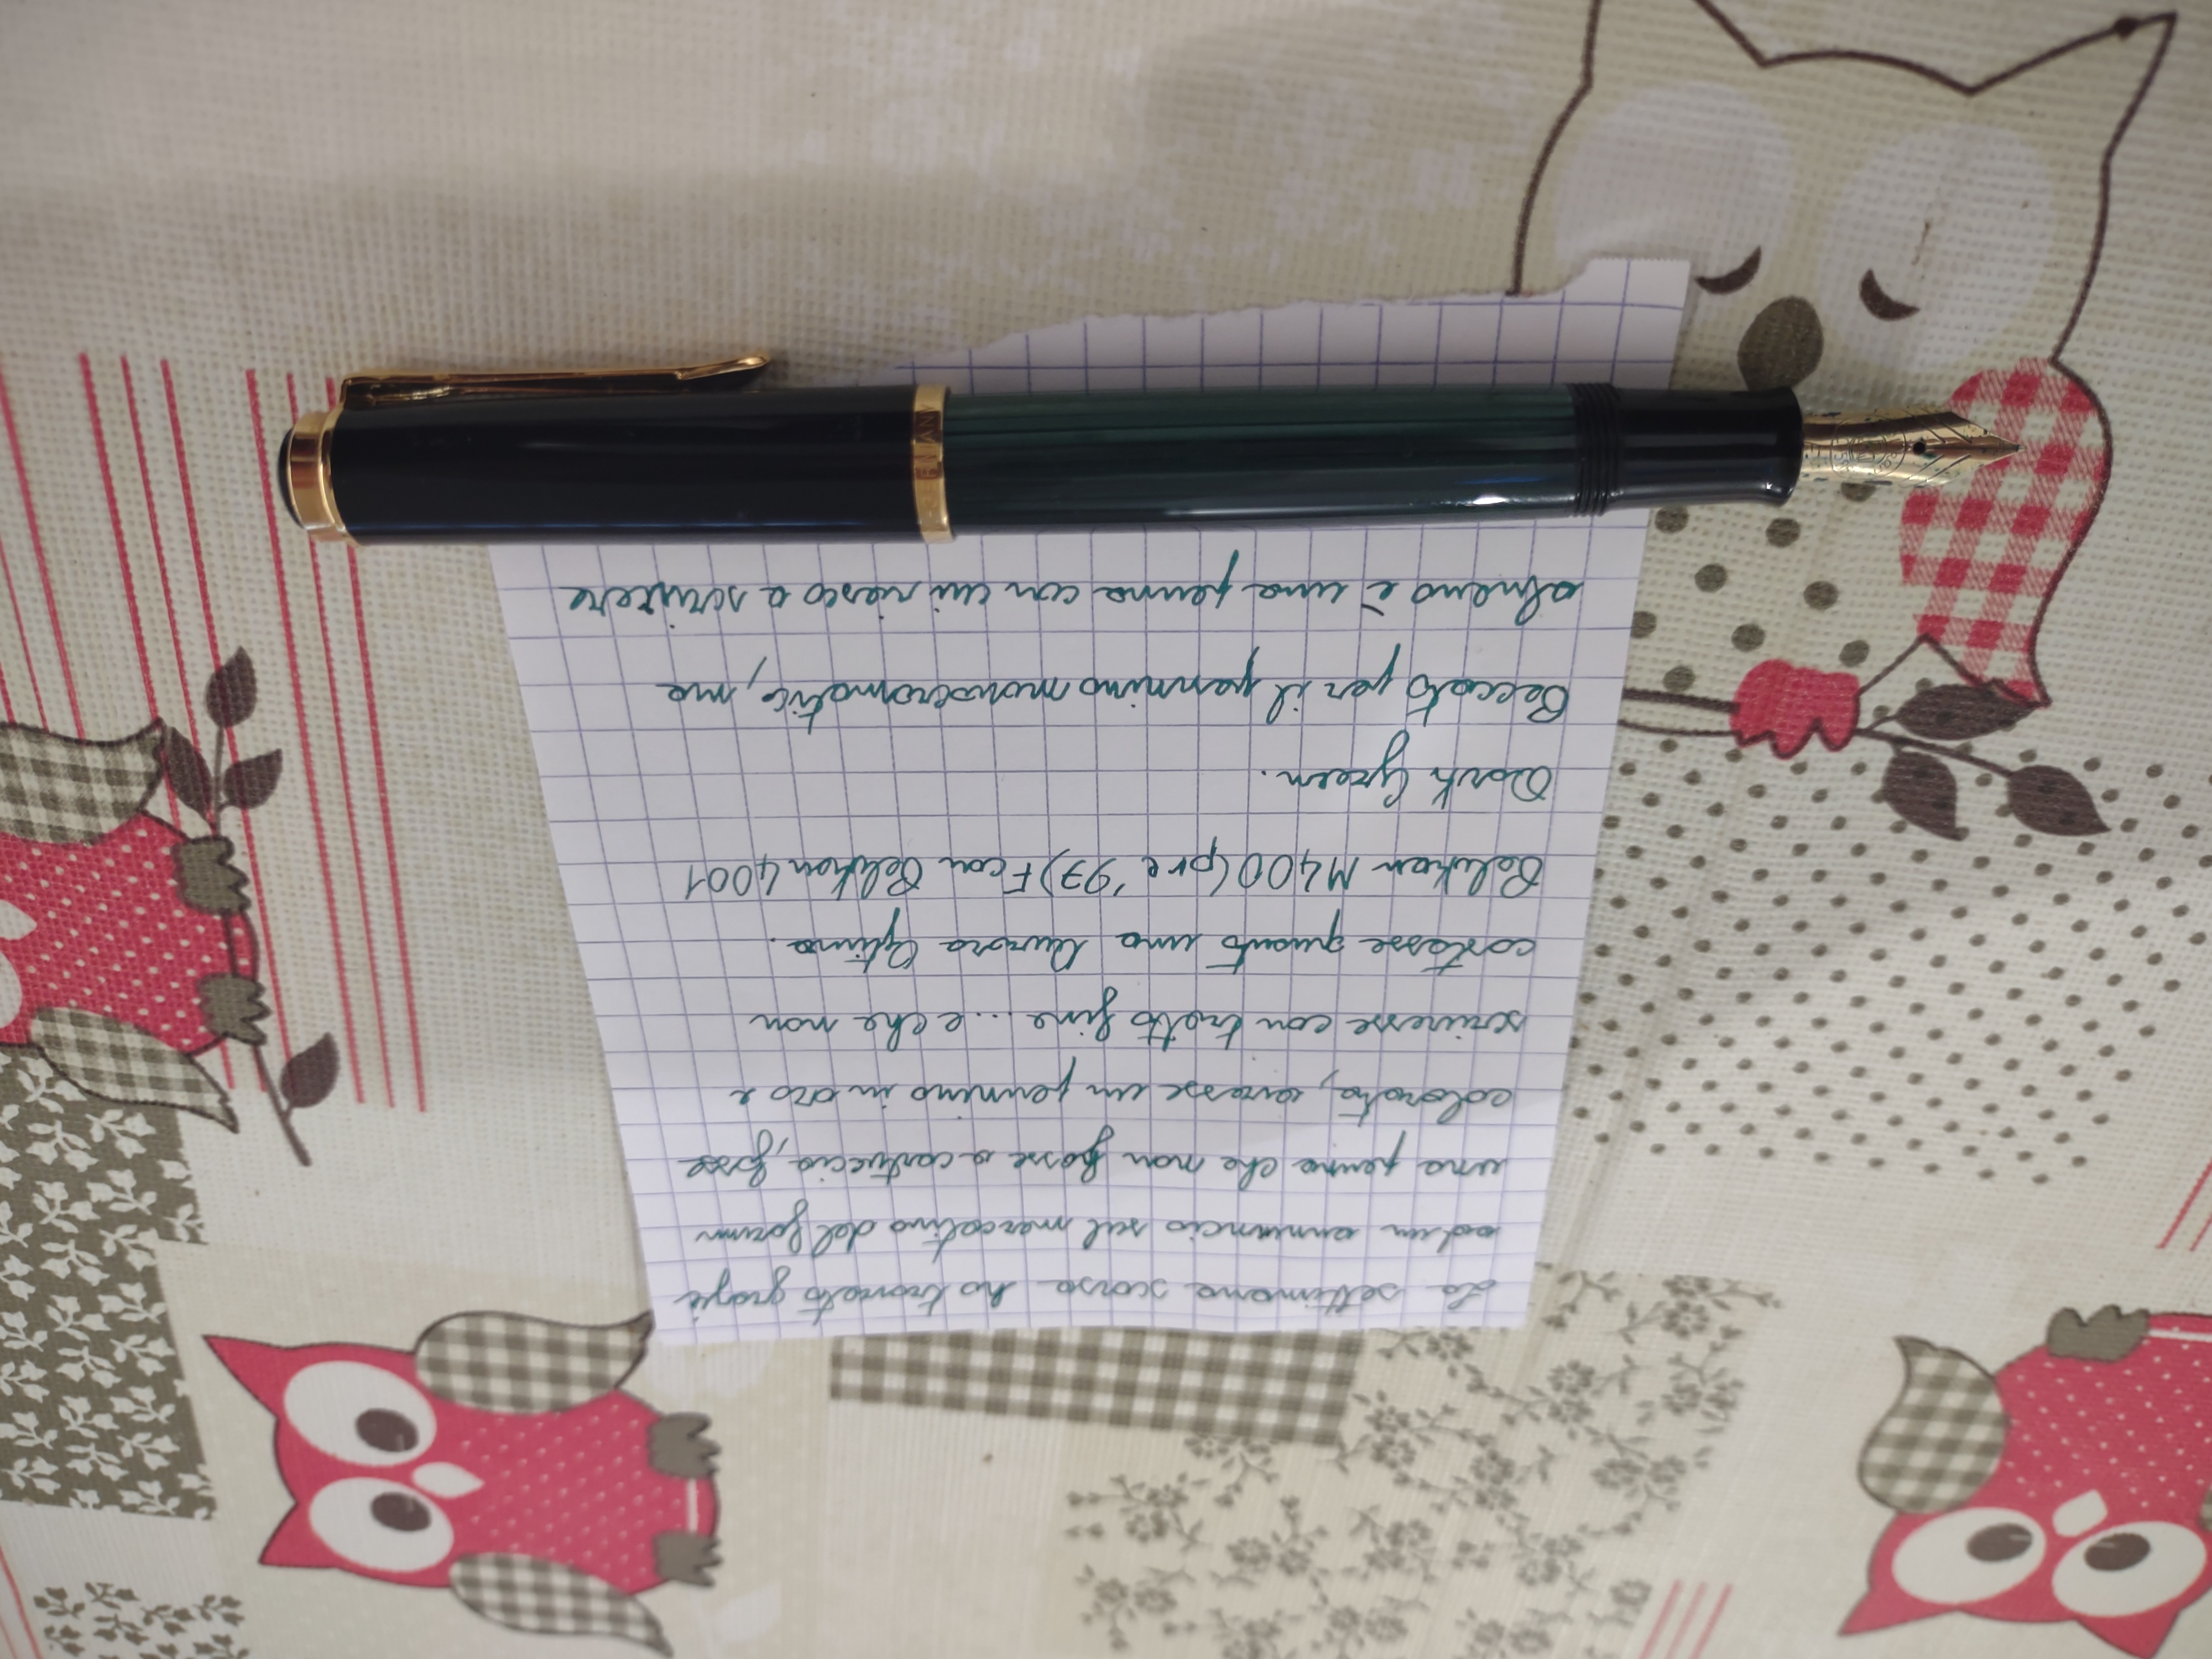 La settimana scorsa ho trovato grazie
ad un annuncio sul mercatino del forum
una penna che non fosse a cartuccia, fosse
colorata, avesse un pennino in oro e
scrivesse con tratto fine... e che non
costasse quanto una Aurora Optima.
Pelikan M400 (pre '97) F con Pelikan 4001
Dark Green.
Peccato per il pennino monocromatico, ma
almeno è una penna con cui riesco a scrivere